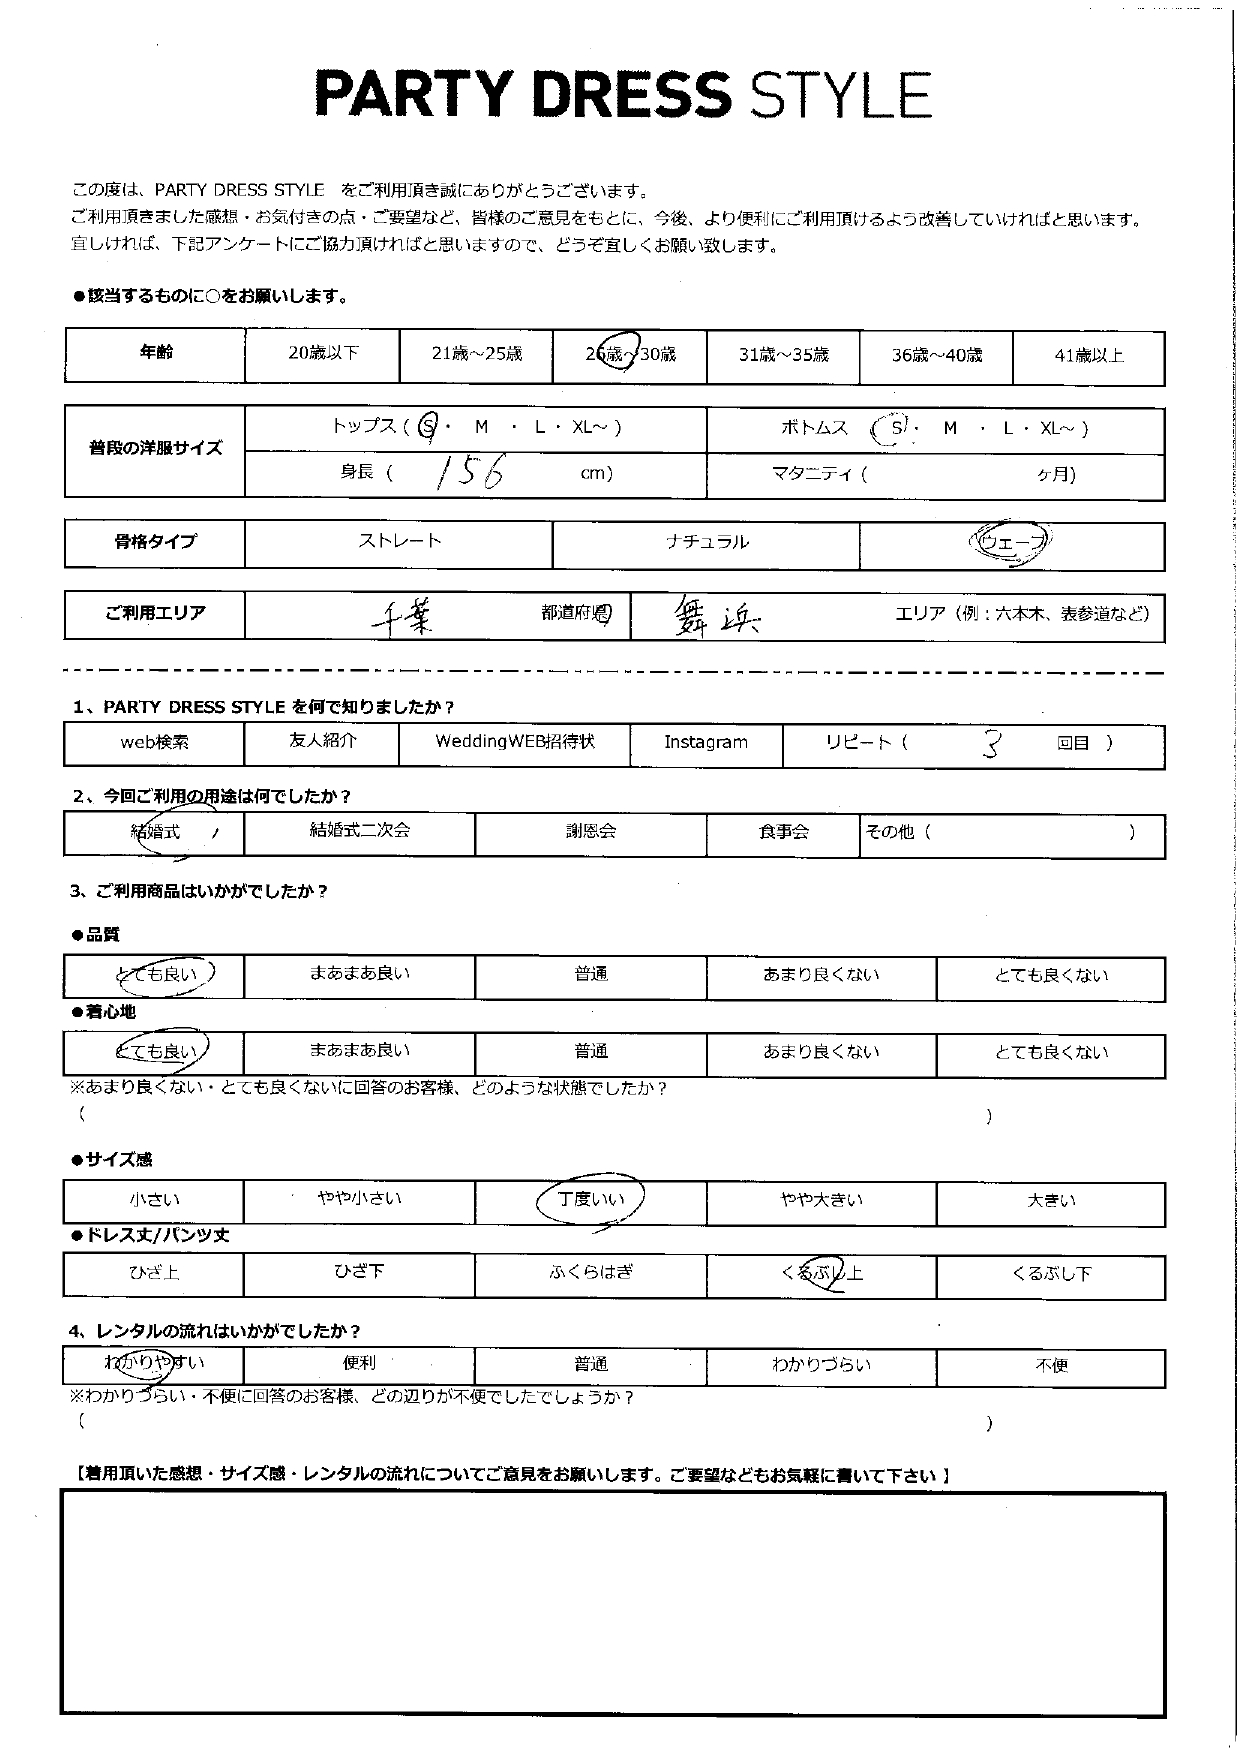 PARTY DRESS STYLE
この度は、PARTY DRESS STYLE をご利用頂き誠にありがとうございます。
ご利用頂きました感想・お気付きの点・ご要望など、皆様のご意見をもとに、今後、より便利にご利用頂けるよう改善していければと思います。
宜しければ、下記アンケートにご協力頂ければと思いますので、どうぞ宜しくお願い致します。
●該当するものに○をお願いします。
年齢 20歳以下 21歳～25歳 26歳～30歳 31歳～35歳 36歳～40歳 41歳以上
普段の洋服サイズ トップス ( S ・ M ・ L ・ XL～ ) ボトムス ( S ・ M ・ L ・ XL～ )
身長 ( 156 cm) マタニティ ( ヶ月)
骨格タイプ ストレート ナチュラル ウェーブ
ご利用エリア 千葉 都道府県 舞浜 エリア（例：六本木、表参道など）
1、PARTY DRESS STYLE を何で知りましたか？
web検索 友人紹介 WeddingWEB招待状 Instagram リピート ( 3 回目 )
2、今回ご利用の用途は何でしたか？
結婚式 結婚式二次会 謝恩会 食事会 その他 ( )
3、ご利用商品はいかがでしたか？
●品質
とても良い まあまあ良い 普通 あまり良くない とても良くない
●着心地
とても良い まあまあ良い 普通 あまり良くない とても良くない
※あまり良くない・とても良くないに回答のお客様、どのような状態でしたか？
( )
●サイズ感
小さい やや小さい 丁度いい やや大きい 大きい
●ドレス丈/パンツ丈
ひざ上 ひざ下 ふくらはぎ くるぶし上 くるぶし下
4、レンタルの流れはいかがでしたか？
わかりやすい 便利 普通 わかりづらい 不便
※わかりづらい・不便に回答のお客様、どの辺りが不便でしたでしょうか？
( )
【着用頂いた感想・サイズ感・レンタルの流れについてご意見をお願いします。ご要望などもお気軽に書いて下さい 】